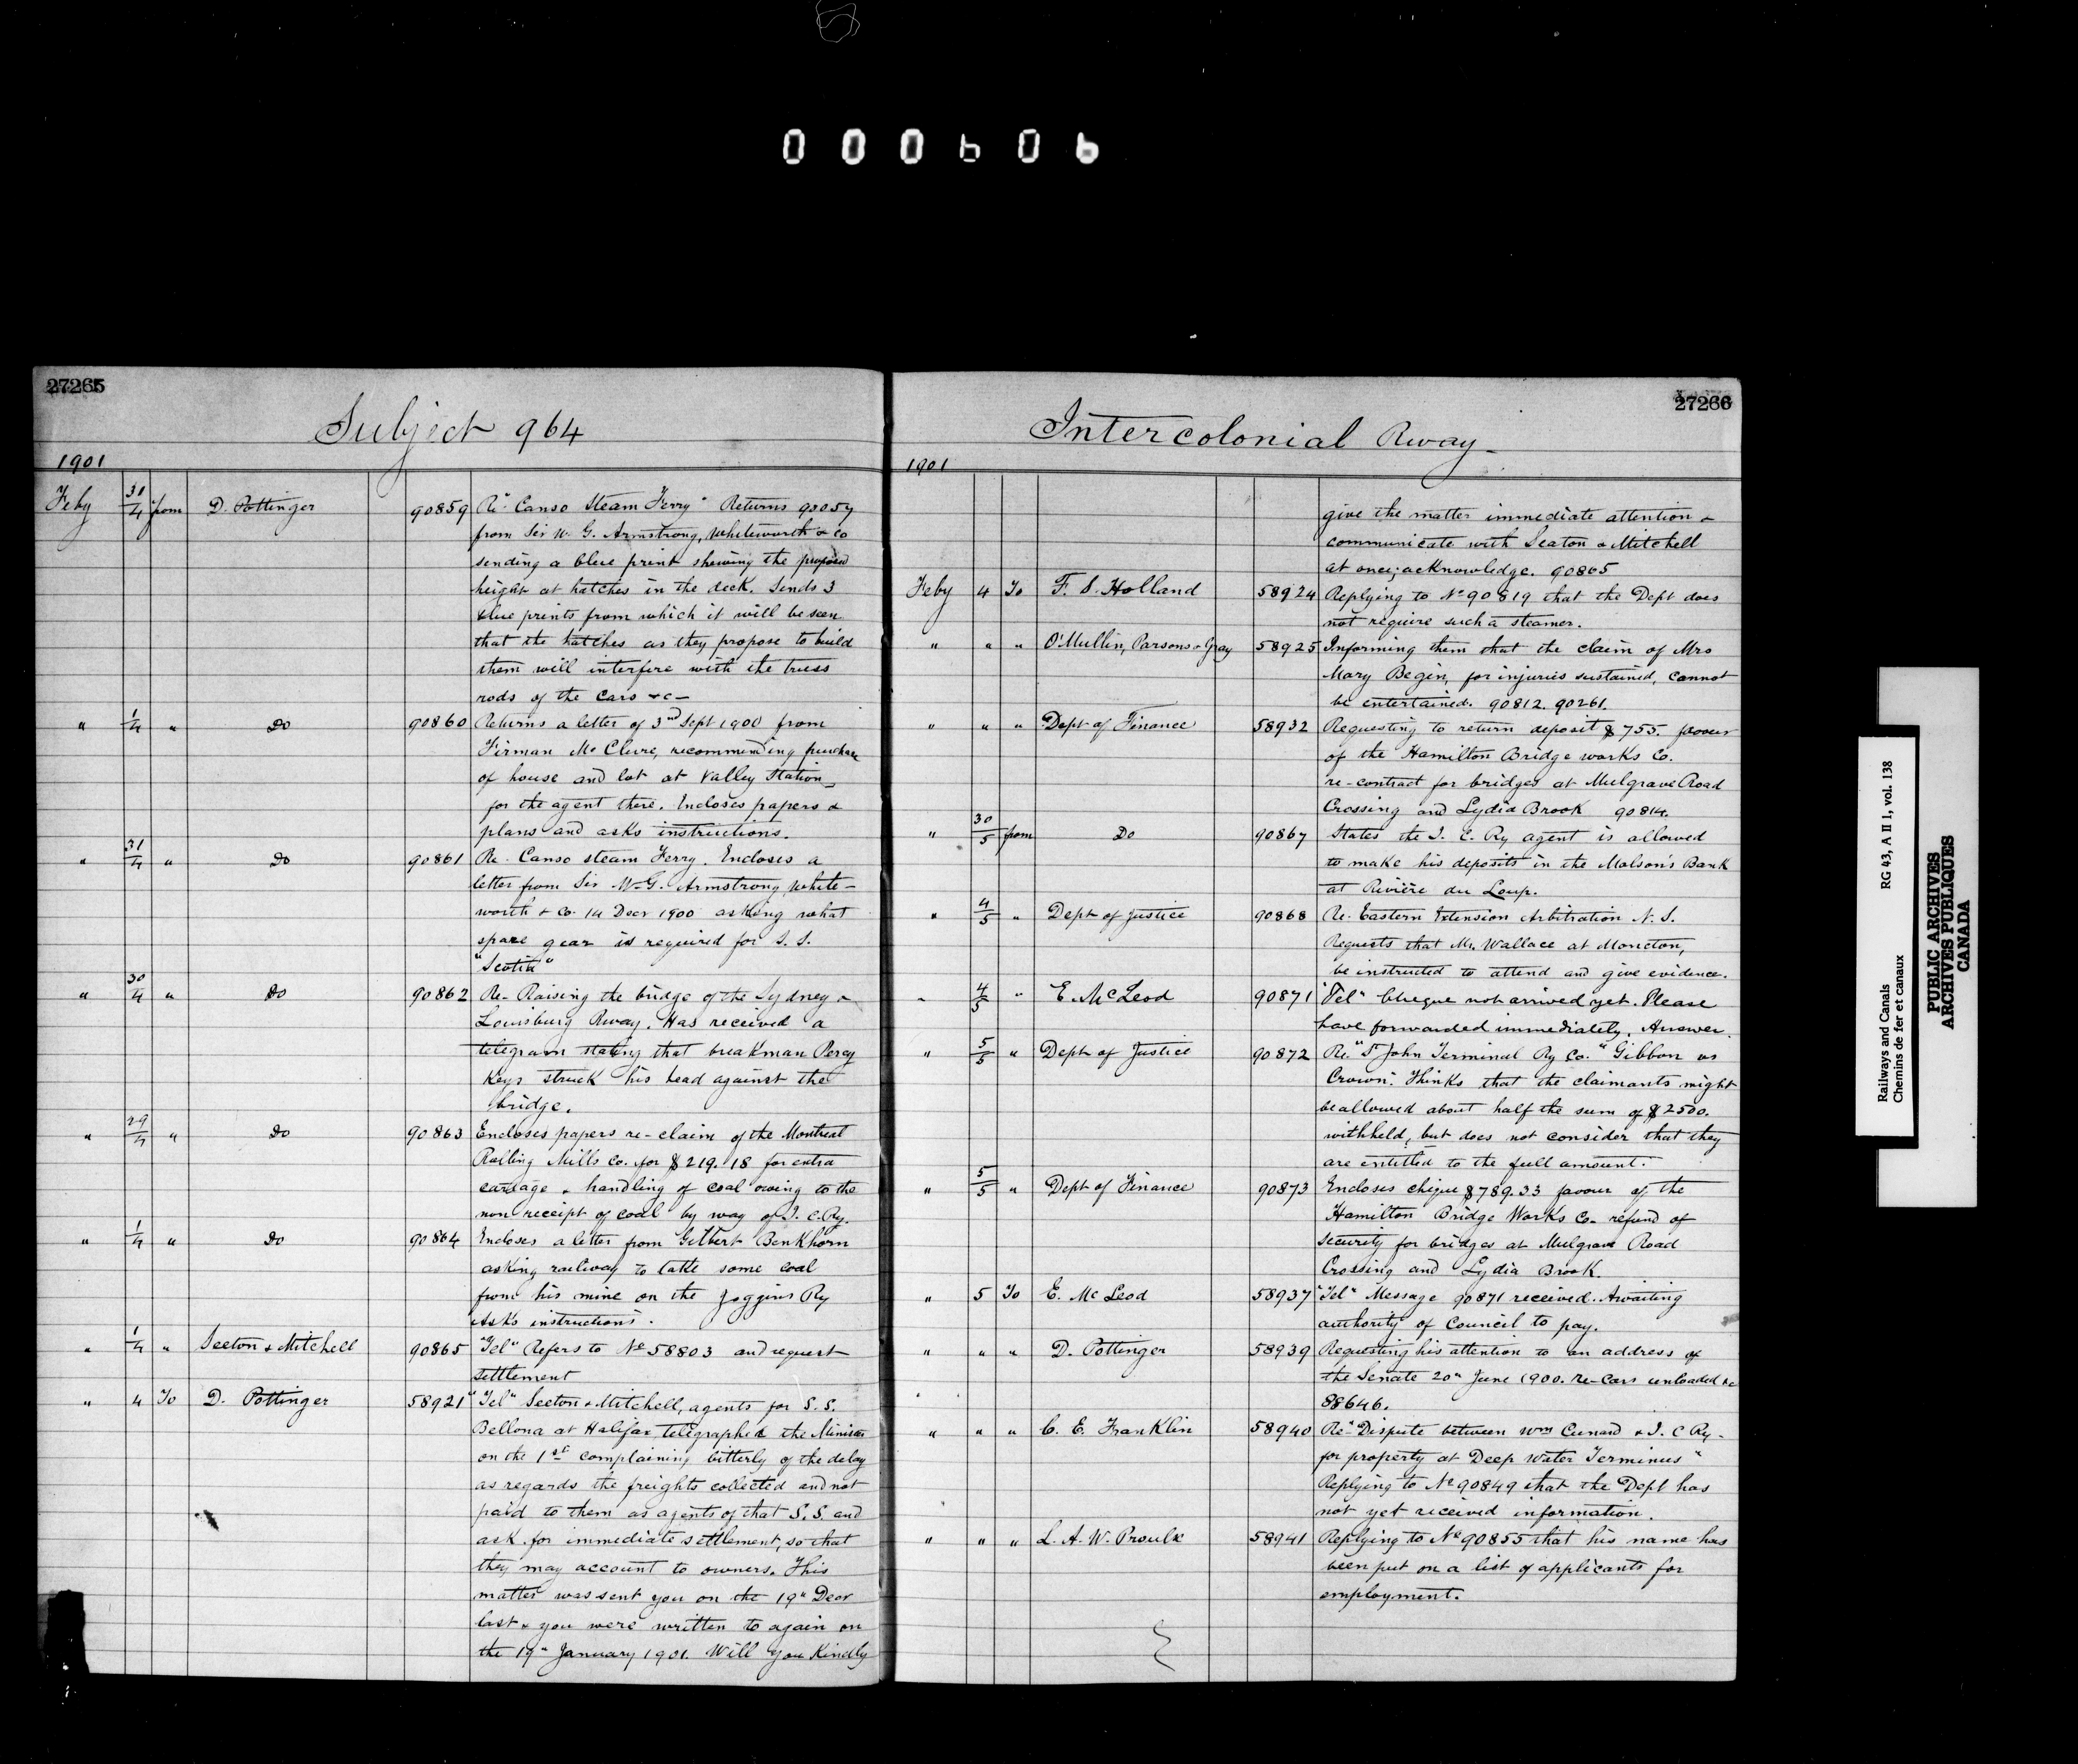 000606
27265
Subject 964
1901
Feby 31/4 from D. Pottinger 90859 Re "Canso Steam Ferry" Returns 90057
from Sir W. G. Armstrong, Whiteworth & Co
sending a blue print shewing the proposed
height at hatches in the deck. Sends 3
blue prints from which it will be seen
that the hatches as they propose to build
them will interfere with the truss
rods of the cars &c-
" 1/4 " Do 90860 Returns a letter of 3rd Sept 1900 from
Firman McClure, recommending purchase
of house and lot at Valley Station
for the agent there. Encloses papers &
plans and asks instructions.
" 31/4 " Do 90861 Re. Canso steam Ferry. Encloses a
letter from Sir W.G. Armstrong, White-
worth & Co. 14 Decr 1900 asking what
spare gear is required for S.S.
"Scotia"
" 30/4 " Do 90862 Re- Raising the bridge of the Sydney &
Louisburg Rway. Has received a
telegram stating that breakman Percy
Keys struck his head against the
bridge.
" 29/4 " Do 90863 Encloses papers re-claim of the Montreal
Rolling Mills Co. for $219.18 for extra
cardage & handling of coal owing to the
non receipt of coal by way of I.C.Ry.
" 1/4 " Do 90864 Encloses a letter from Gilbert Benkhorn
asking railway to take some coal
from his mine on the Joggins Ry
Asks instructions.
" 1/4 " Seeton & Mitchell 90865 "Tel" Refers to No 58803 and request
settlement
" 4 To D. Pottinger 58921 "Tel" Seeton & Mitchell, agents for S.S.
Bellona at Halifax telegraphed the Minister
on the 1st complaining bitterly of the delay
as regards the freights collected and not
paid to them as agents of that S.S. and
ask for immediate settlement, so that
they may account to owners. This
matter was sent you on the 19" Decr
last & you were written to again on
the 19" January 1901. Will you Kindly
27266
Intercolonial Rway
1901
give the matter immediate attention &
communicate with Seaton & Mitchell
at once; acknowledge. 90865
Feby 4 To F. S. Holland 58924 Replying to No 90819 that the Dept does
not require such a steamer.
" " " O'Mullin, Parsons & Gray 58925 Informing them that the claim of Mrs
Mary Begin, for injuries sustained, cannot
be entertained. 90812. 90261.
" " " Dept of Finance 58932 Requesting to return deposit $755. favour
of the Hamilton Bridge works Co.
re-contract for bridges at Mulgrave Road
Crossing and Lydia Brook 90814.
" 30/5 from Do 90867 States the I. C. Ry agent is allowed
to make his deposits in the Molson's Bank
at Rivière du Loup.
" 4/5 " Dept of Justice 90868 Re. Eastern Extension Arbitration N.S.
Requests that Mr. Wallace at Moncton,
be instructed to attend and give evidence.
" 4/5 " E. McLeod 90871 "Tel" Cheque not arrived yet. Please
have forwarded immediately. Answer.
" 5/5 " Dept of Justice 90872 Re. "St John Terminal Ry Co." Gibbon vs
Crown. Thinks that the claimants might
be allowed about half the sum of $2500.
withheld, but does not consider that they
are entitled to the full amount.
" 5/5 " Dept of Finance 90873 Encloses cheque $789.33 favour of the
Hamilton Bridge Works Co- refund of
security for bridges at Mulgrave Road
Crossing and Lydia Brook.
" 5 To E. McLeod 58937 "Tel" Message 90871 received. Awaiting
authority of Council to pay.
" " " D. Pottinger 58939 Requesting his attention to an address of
the Senate 20" June 1900. re-Cars unloaded &c
88646.
" " " C. E. Franklin 58940 Re "Dispute between Wm Cunard & I. C Ry-
for property at Deep Water Terminus"
Replying to No 90849 that the Dept has
not yet received information.
" " " L. A. W. Proulx 58941 Replying to No 90855 that his name has
been put on a list of applicants for
employment.
Railways and Canals RG 43, A II 1, vol. 138
Chemins de fer et canaux
PUBLIC ARCHIVES
ARCHIVES PUBLIQUES
CANADA